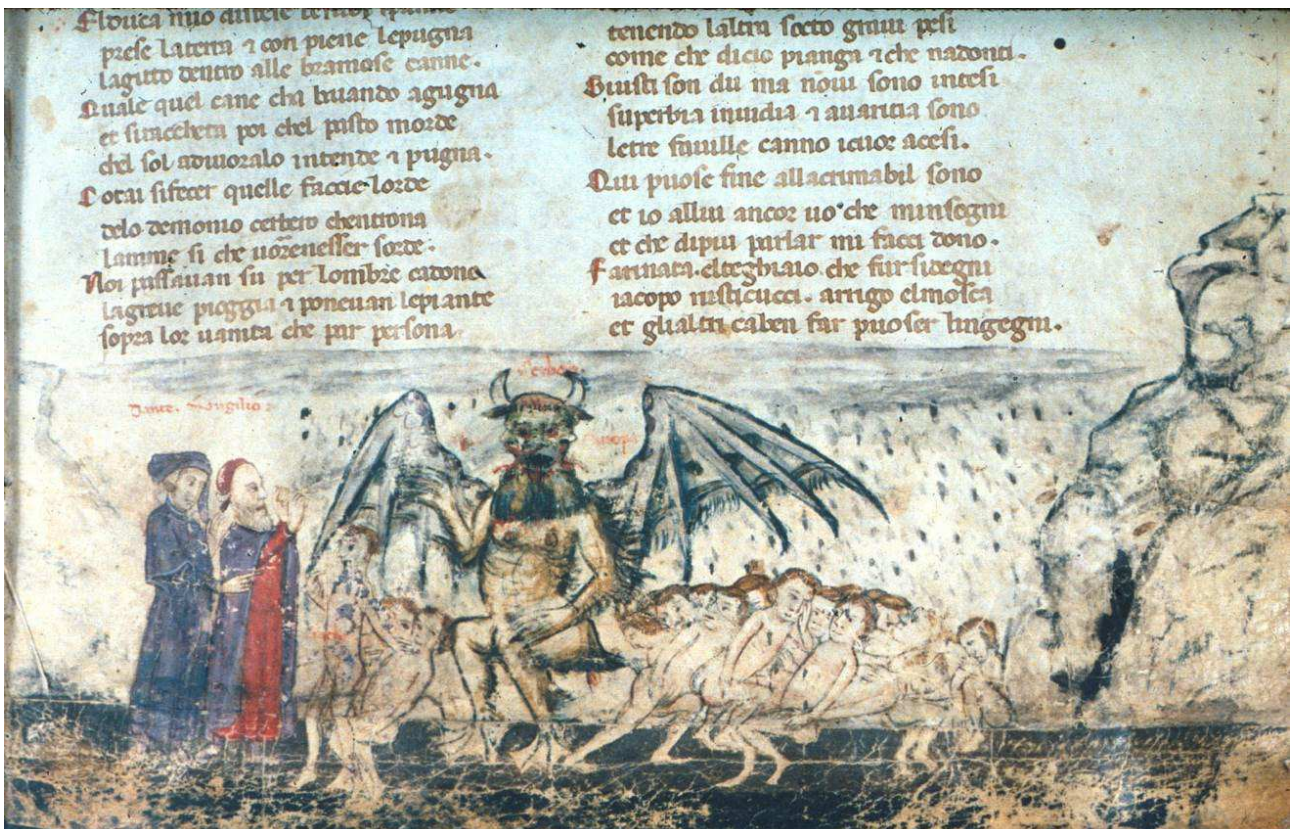 prese laterra ⁊ con piene lepugna
lagitto dentro alle bramose canne.
Quale quel cane cha bavando agugna
et siracheta poi chel pasto morde
chel sol adivoralo intende ⁊ pugna.
Cotai sifecer quelle faccie lorde
delo demonio cerbero chentrona
lamme si che vorenesser sorde.
Noi passavan su per lombre cadona
lagreve pioggia ⁊ ponevan lepiante
sopra lor vanita che par persona.
tenendo laltra socto gravi pesi
come che dicio pianga ⁊ che nadonti.
Giusti son du ma novi sono intesi
superbia invidia ⁊ avaritia sono
letre faville canno icuor acesi.
Qui puose fine allacrimabil sono
et io allui ancor vo che minsegni
et che dipiu parlar mi facci dono.
Farinata. elteghiaio. che fur sidegni
iacopo rusticucci. arrigo elmosca
et glialtri caben far puoser lingegni.
Dante. Virgilio.